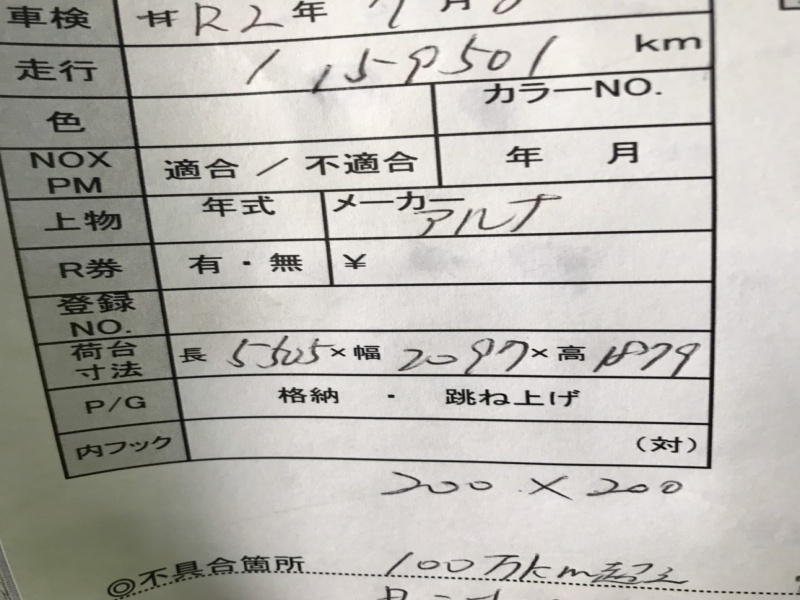 車検 R2年 7月
走行 1,159501 km
色 カラーNO.
NOX PM 適合 / 不適合 年 月
上物 年式 メーカー アルナ
R券 有・無 ¥
登録NO.
荷台寸法 長 5505×幅 2097×高 1879
P/G 格納 ・ 跳ね上げ
内フック (対)
200×200
◎不具合箇所 100万km超え